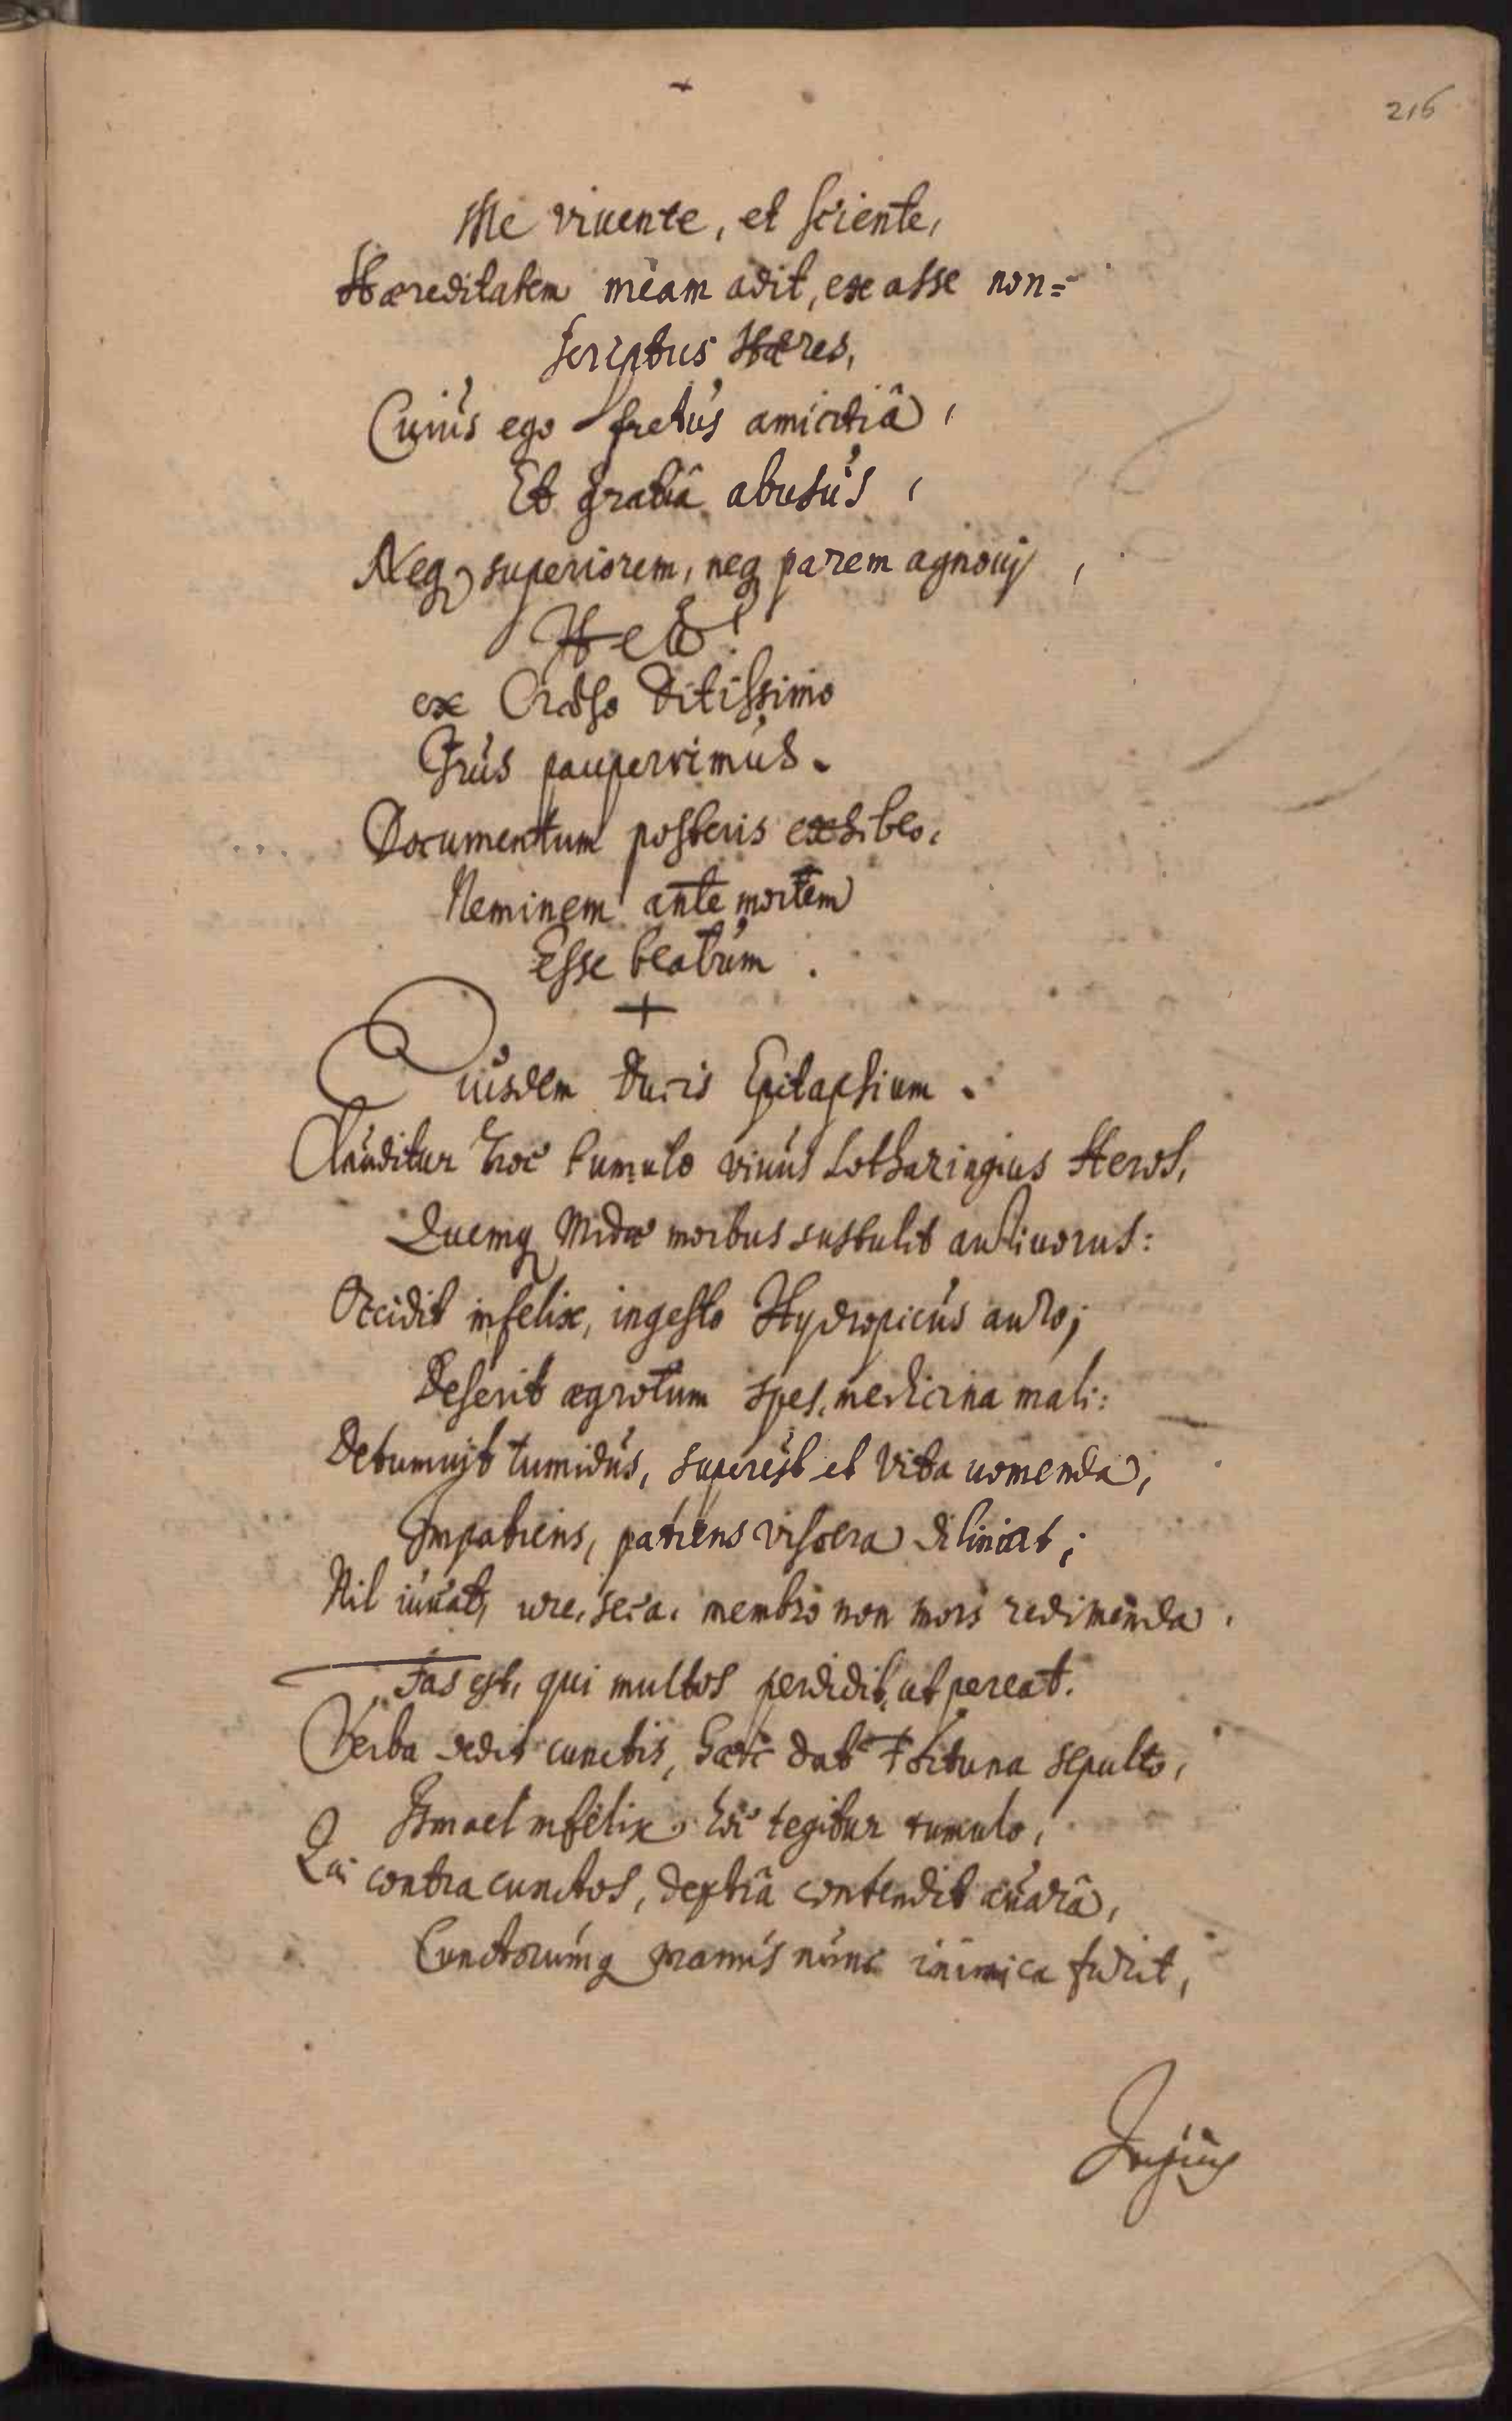 216
Me viuente, et sciente,
Hæreditatem meam adit, ex asse non=
scriptus Hæres,
Cuius ego fretus amicitiâ,
Et gratiâ abusus,
Neq superiorem, neq parem agnouj,
Heu!
ex Cræso Ditissimo
Irus pauperrimus.
Documentum posteris exhibeo,
Neminem ante mortem
Esse beatum.
Eiusdem Ducis Epitaphium.
Clauditur hoc tumulo viuus Lotharingius Heros,
Quemq Midæ morbus sustulit
Occidit infelix, ingesto Hydropicus auro;
Deserit ægrotum spes, medicina mali:
Detumuit tumidus, superest et Vita uomenda,
Impatiens, patiens viscera
Nil iuuat, ure, seca, membro non mors redimenda.
Fas est, qui multos perdidit, ut pereat.
Verba dedit cunctis, hæc dat Fortuna sepulto,
Ismael infelix, hoc tegitur tumulo,
Qui contra cunctos, dextrâ contendit auarâ,
Cunctorumq manus nunc inimica furit,